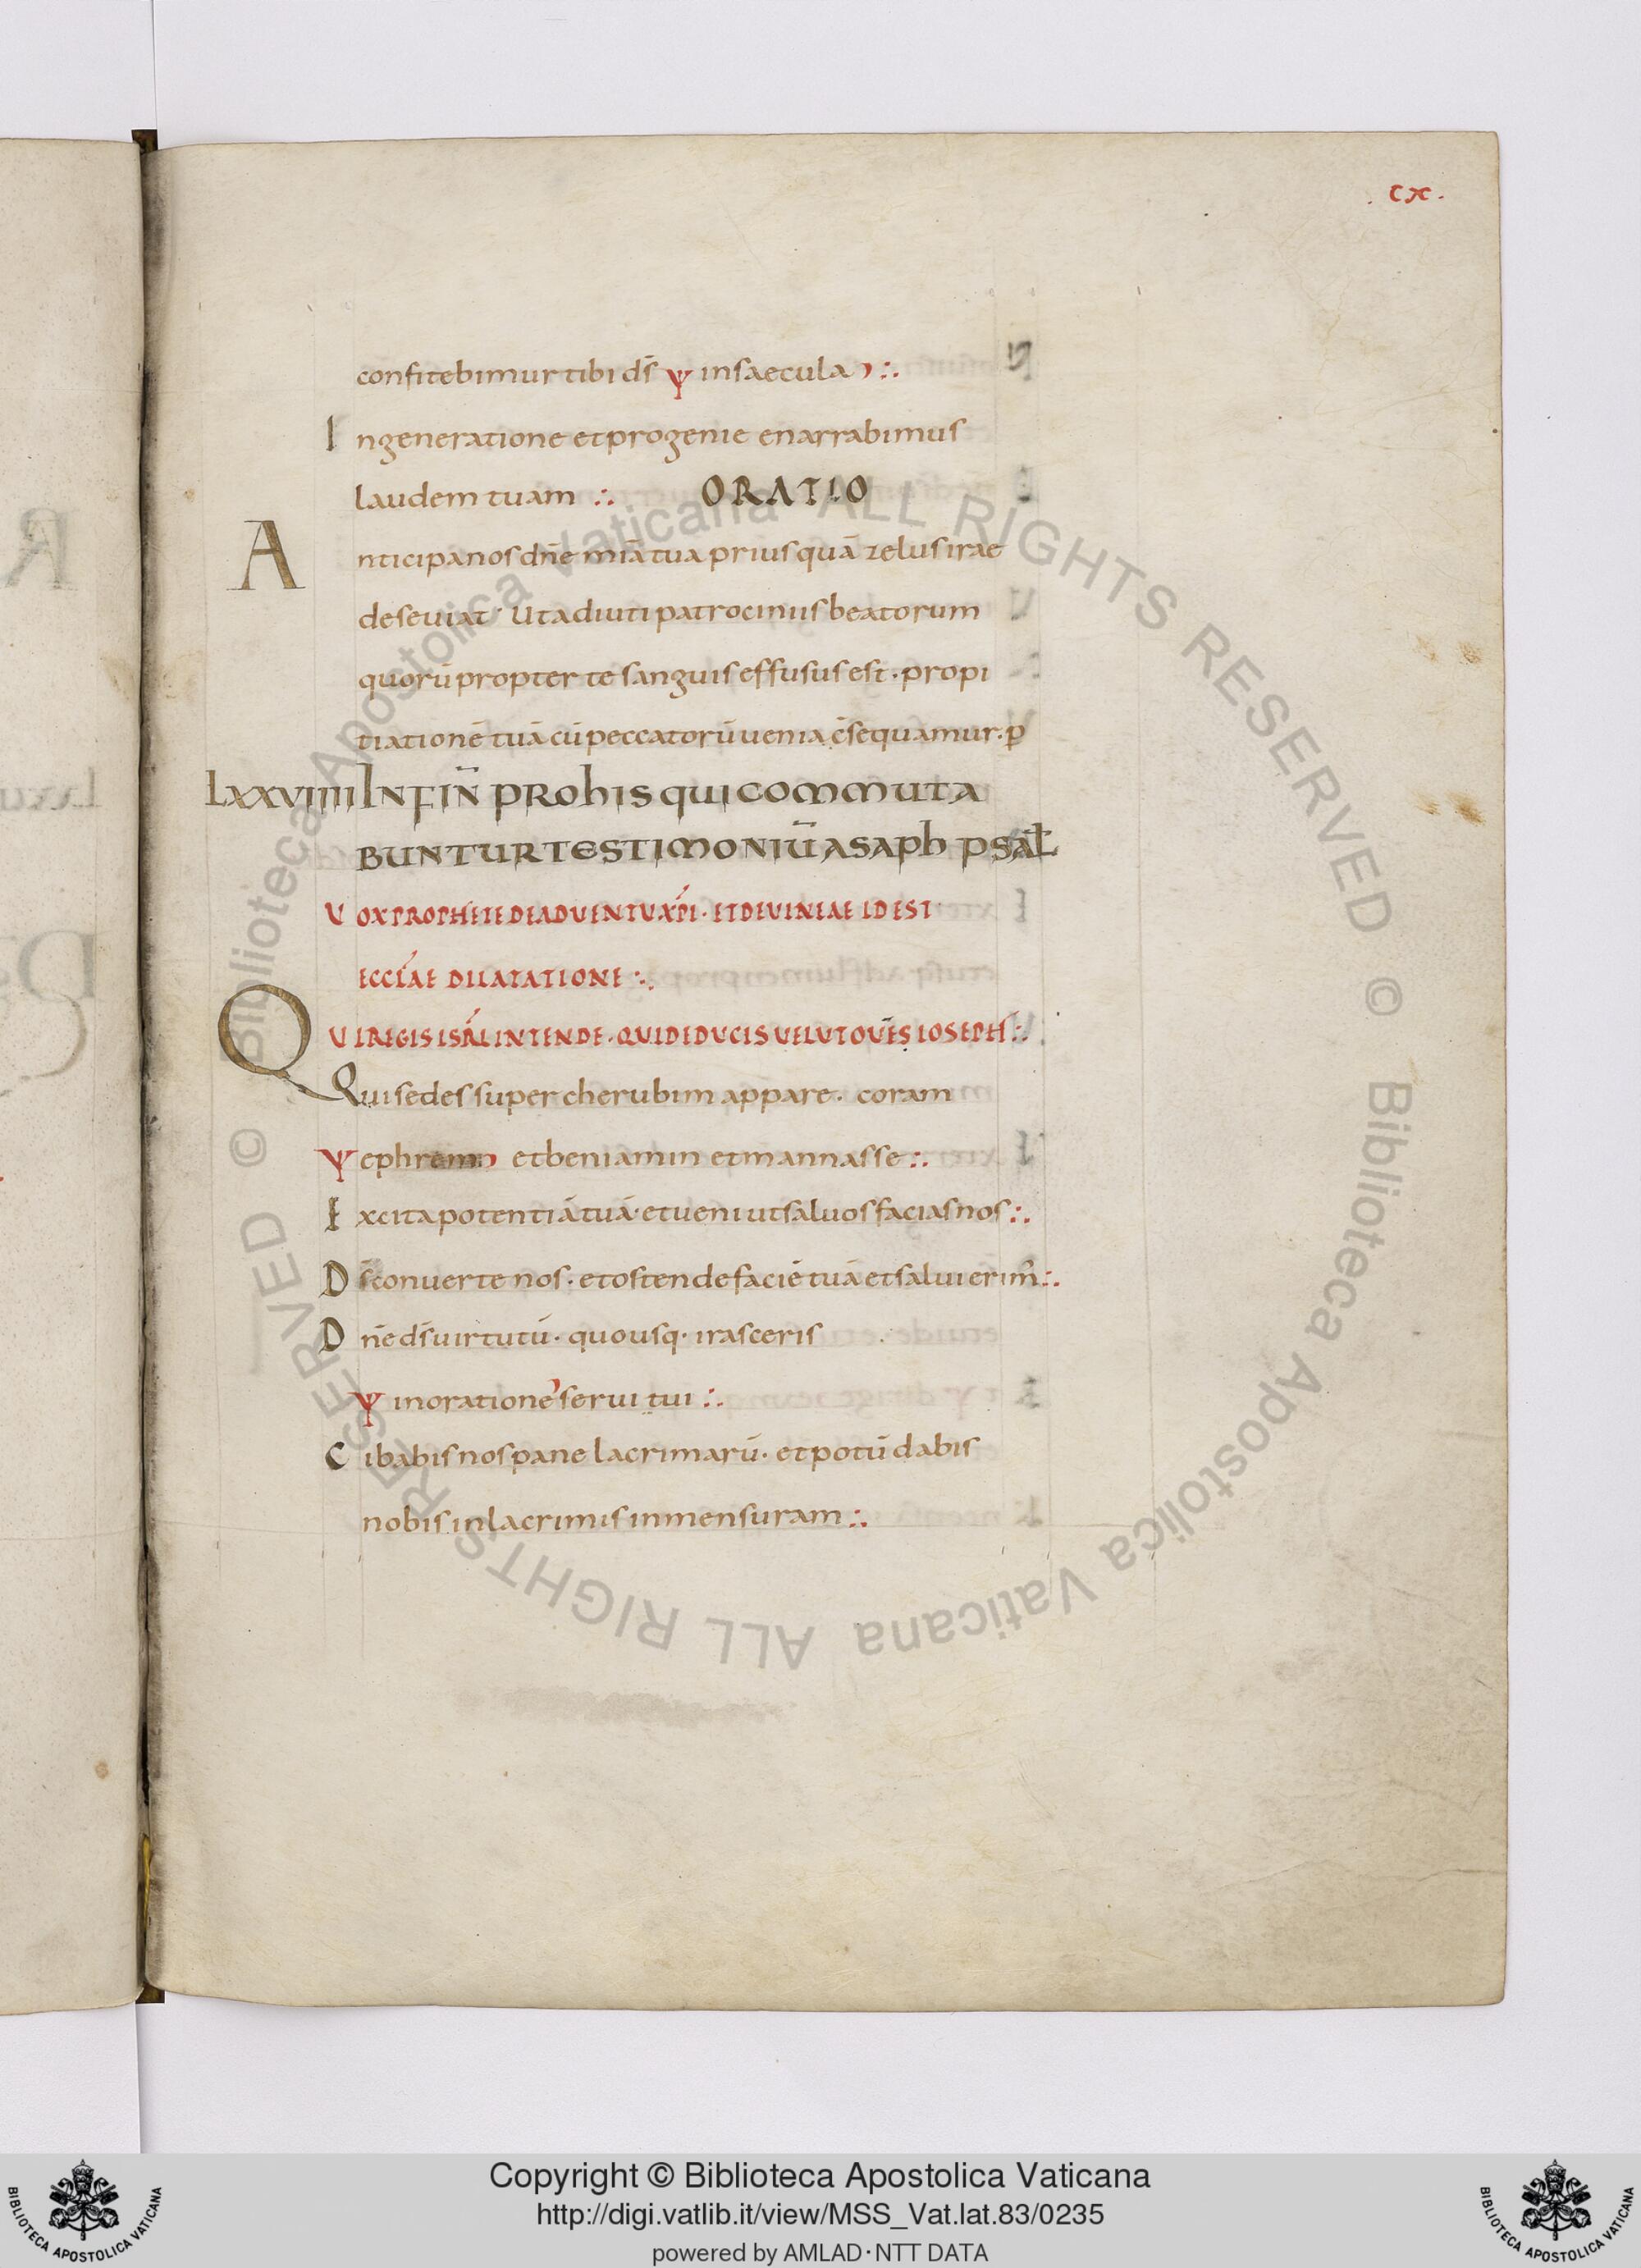 . cx .
confitebimur tibi dš ψ insaecula ∴
Ingeneratione etprogenie enarrabimus
laudem tuam ∴ ORATIO
Anticipanos dñe miā tua priusquā zelus irae
deseuiat Ut adiuti patrociniis beatorum
quorū propter te sanguis effusus est · propi
tiationē tuā cū peccatorū uenia c̄sequamur · p
LXXVIIII IN FIÑ PRO HIS QUI COMMUTA
BUNTUR TESTIMONIŪ ASAPH PSAŁ
VOX PROPHETE DE ADVENTU XP̄I · ET DE VINEAE IDEST
ECCLAE DILATATIONE ∴
QVI REGIS ISRL INTENDE · QVI DEDUCIS VELUT OVES IOSEPH ∴
Qui sedes super cherubim appare · coram
ψ ephrem etbeniamin etmannasse ∴
Excita potentiā tuā · et ueni ut saluos facias nos ∴
Dš conuerte nos · et ostende faciē tuā et salui erim̄ ∴
Dñe dš uirtutū · quousq · irasceris
ψ inorationē serui tui ∴
Cibabis nos pane lacrimarū · et potū dabis
nobis in lacrimis inmensuram ∴
© Biblioteca Apostolica Vaticana ALL RIGHTS RESERVED © Biblioteca Apostolica Vaticana ALL RIGHTS RESERVED
Copyright © Biblioteca Apostolica Vaticana
http://digi.vatlib.it/view/MSS_Vat.lat.83/0235
powered by AMLAD·NTT DATA
BIBLIOTECA APOSTOLICA VATICANA
BIBLIOTECA APOSTOLICA VATICANA